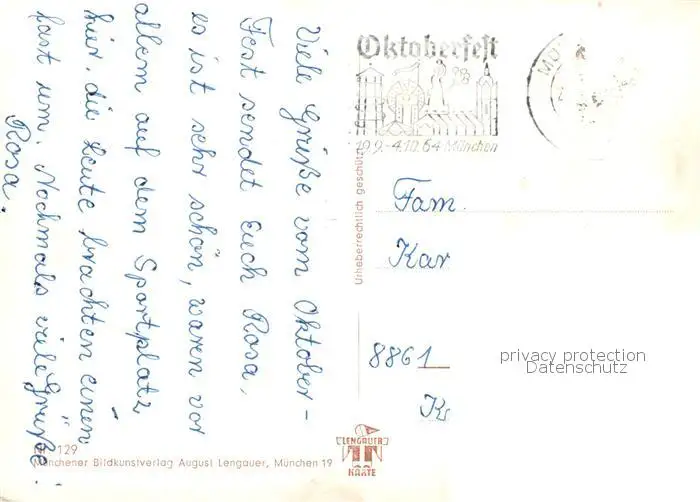 Viele Grüße vom Oktober-
Fest sendet Euch Rosa,
es ist sehr schön, waren vor
allem auf dem Sportplatz
hier. die Leute brachten einen
fast um. Nochmals viele Grüße.
Rosa.
Oktoberfest
19.9.-4.10.64 München
Urheberrechtlich geschützt
Fam.
Kar
8861
privacy protection
Datenschutz
129
Münchener Bildkunstverlag August Lengauer, München 19
LENGAUER
KARTE